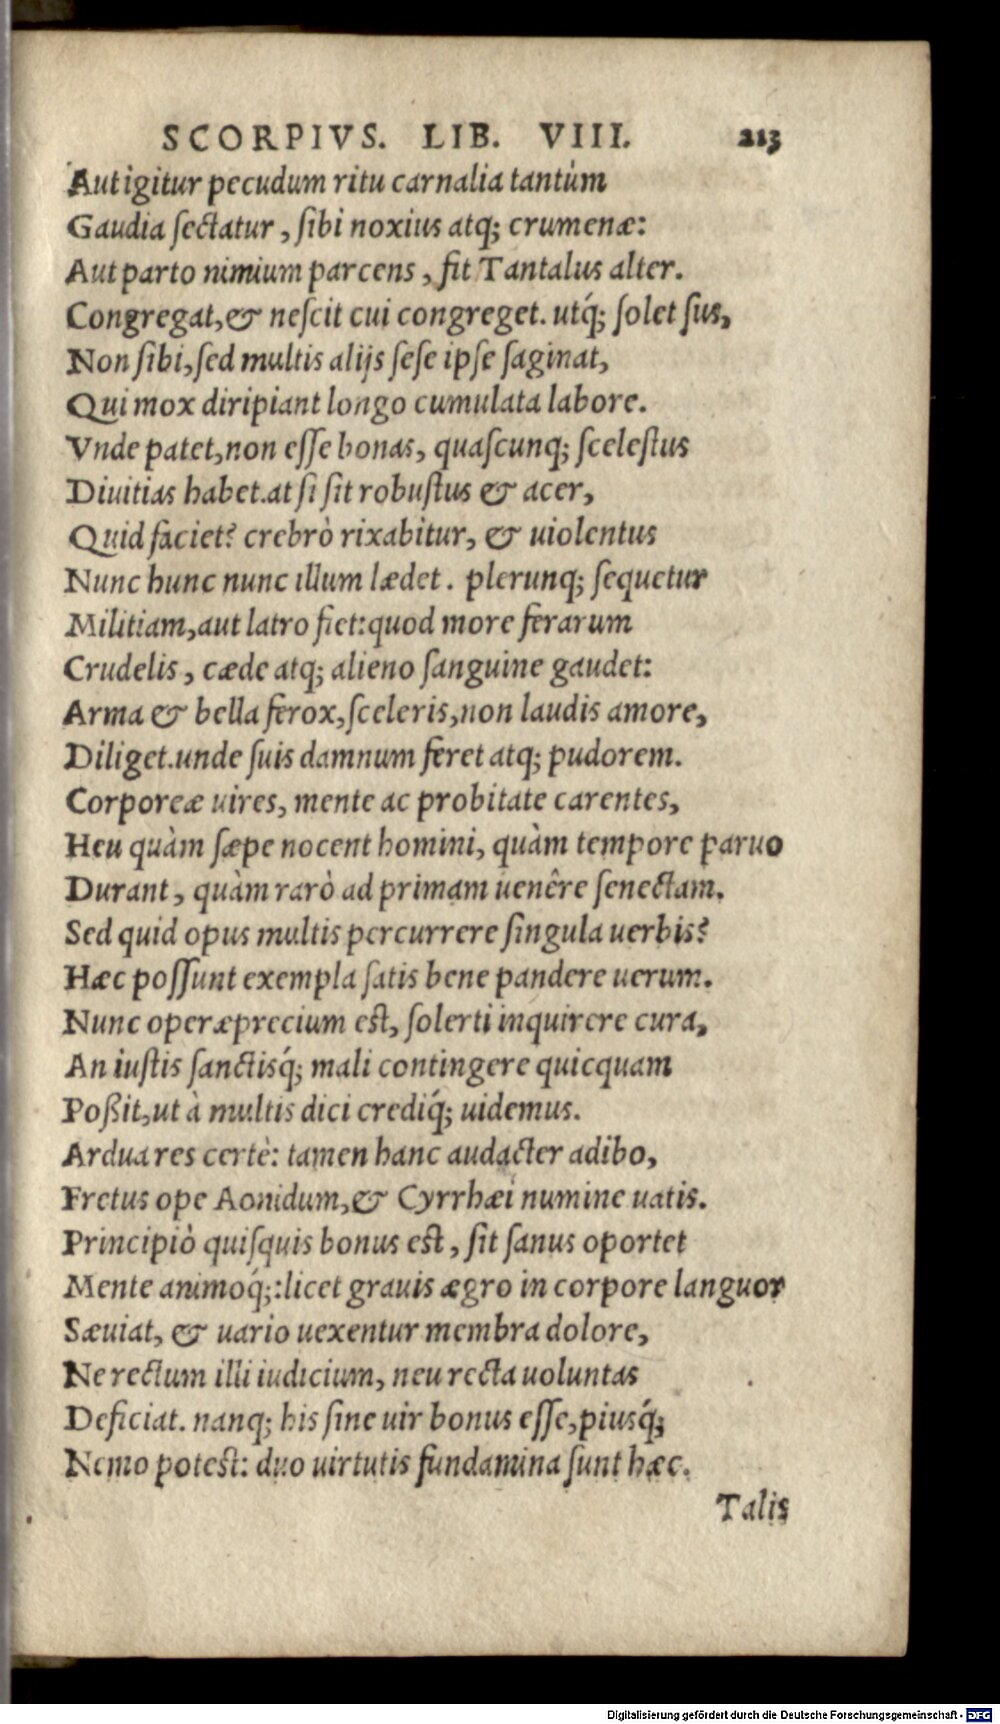 SCORPIVS. LIB. VIII. 213
Aut igitur pecudum ritu carnalia tantùm
Gaudia ſectatur, ſibi noxius atq; crumenæ:
Aut parto nimium parcens, fit Tantalus alter.
Congregat, & neſcit cui congreget. utq́; ſolet ſus,
Non ſibi, ſed multis alijs ſeſe ipſe ſaginat,
Qui mox diripiant longo cumulata labore.
Vnde patet, non eſſe bonas, quaſcunq; ſceleſtus
Diuitias habet. at ſi ſit robuſtus & acer,
Quid faciet? crebrò rixabitur, & uiolentus
Nunc hunc nunc illum lædet. plerunq; ſequetur
Militiam, aut latro fiet: quod more ferarum
Crudelis, cæde atq; alieno ſanguine gaudet:
Arma & bella ferox, ſceleris, non laudis amore,
Diliget. unde ſuis damnum feret atq; pudorem.
Corporeæ uires, mente ac probitate carentes,
Heu quàm ſæpe nocent homini, quàm tempore paruo
Durant, quàm rarò ad primam uenêre ſenectam.
Sed quid opus multis percurrere ſingula uerbis?
Hæc poſſunt exempla ſatis bene pandere uerum.
Nunc operæprecium eſt, ſolerti inquirere cura,
An iuſtis ſanctisq́; mali contingere quicquam
Poßit, ut à multis dici crediq́; uidemus.
Ardua res certè: tamen hanc audacter adibo,
Fretus ope Aonidum, & Cyrrhæi numine uatis.
Principiò quiſquis bonus eſt, ſit ſanus oportet
Mente animoq́;: licet grauis ægro in corpore languor
Sæuiat, & uario uexentur membra dolore,
Ne rectum illi iudicium, neu recta uoluntas
Deficiat. nanq; his ſine uir bonus eſſe, piusq́;
Nemo poteſt: duo uirtutis fundamina ſunt hæc.
Talis
Digitalisierung gefördert durch die Deutsche Forschungsgemeinschaft - DFG